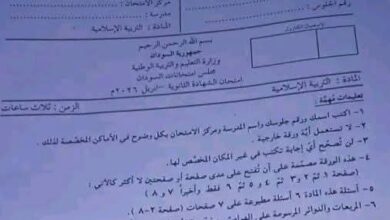 مركز الامتحان :
رقم الجلوس :
مدرسة :
المادة : التربية الإسلامية
بسم الله الرحمن الرحيم
جمهورية السودان
وزارة التعليم والتربية الوطنية
مجلس امتحانات السودان
امتحان الشهادة الثانوية - ابريل ٢٠٢٦م
المادة : التربية الإسلامية
الزمن : ثلاث ساعات
تعليمات مهمة :
١- اكتب اسمك ورقم جلوسك واسم المدرسة ومركز الامتحان بكل وضوح في الأماكن المخصصة لذلك .
٢- لا تستعمل أية ورقة خارجية .
٣- لن تُصحح أي إجابة تكتب في غير المكان المخصص لها.
٤- هذه الورقة مصممة على أن تُفتح على مدى صفحة أو صفحتين لا أكثر كالآتي :
(صفحة ١ ثم ٢ و ٣ ثم ٤ و ٥ ثم ٦ فقط وأخيراً ٧ و ٨ )
٥- أسئلة هذه المادة ٦ أسئلة مطبوعة على ٧ صفحات (صفحة ٢-٨ ).
٦- المربعات والدوائر المرسومة على